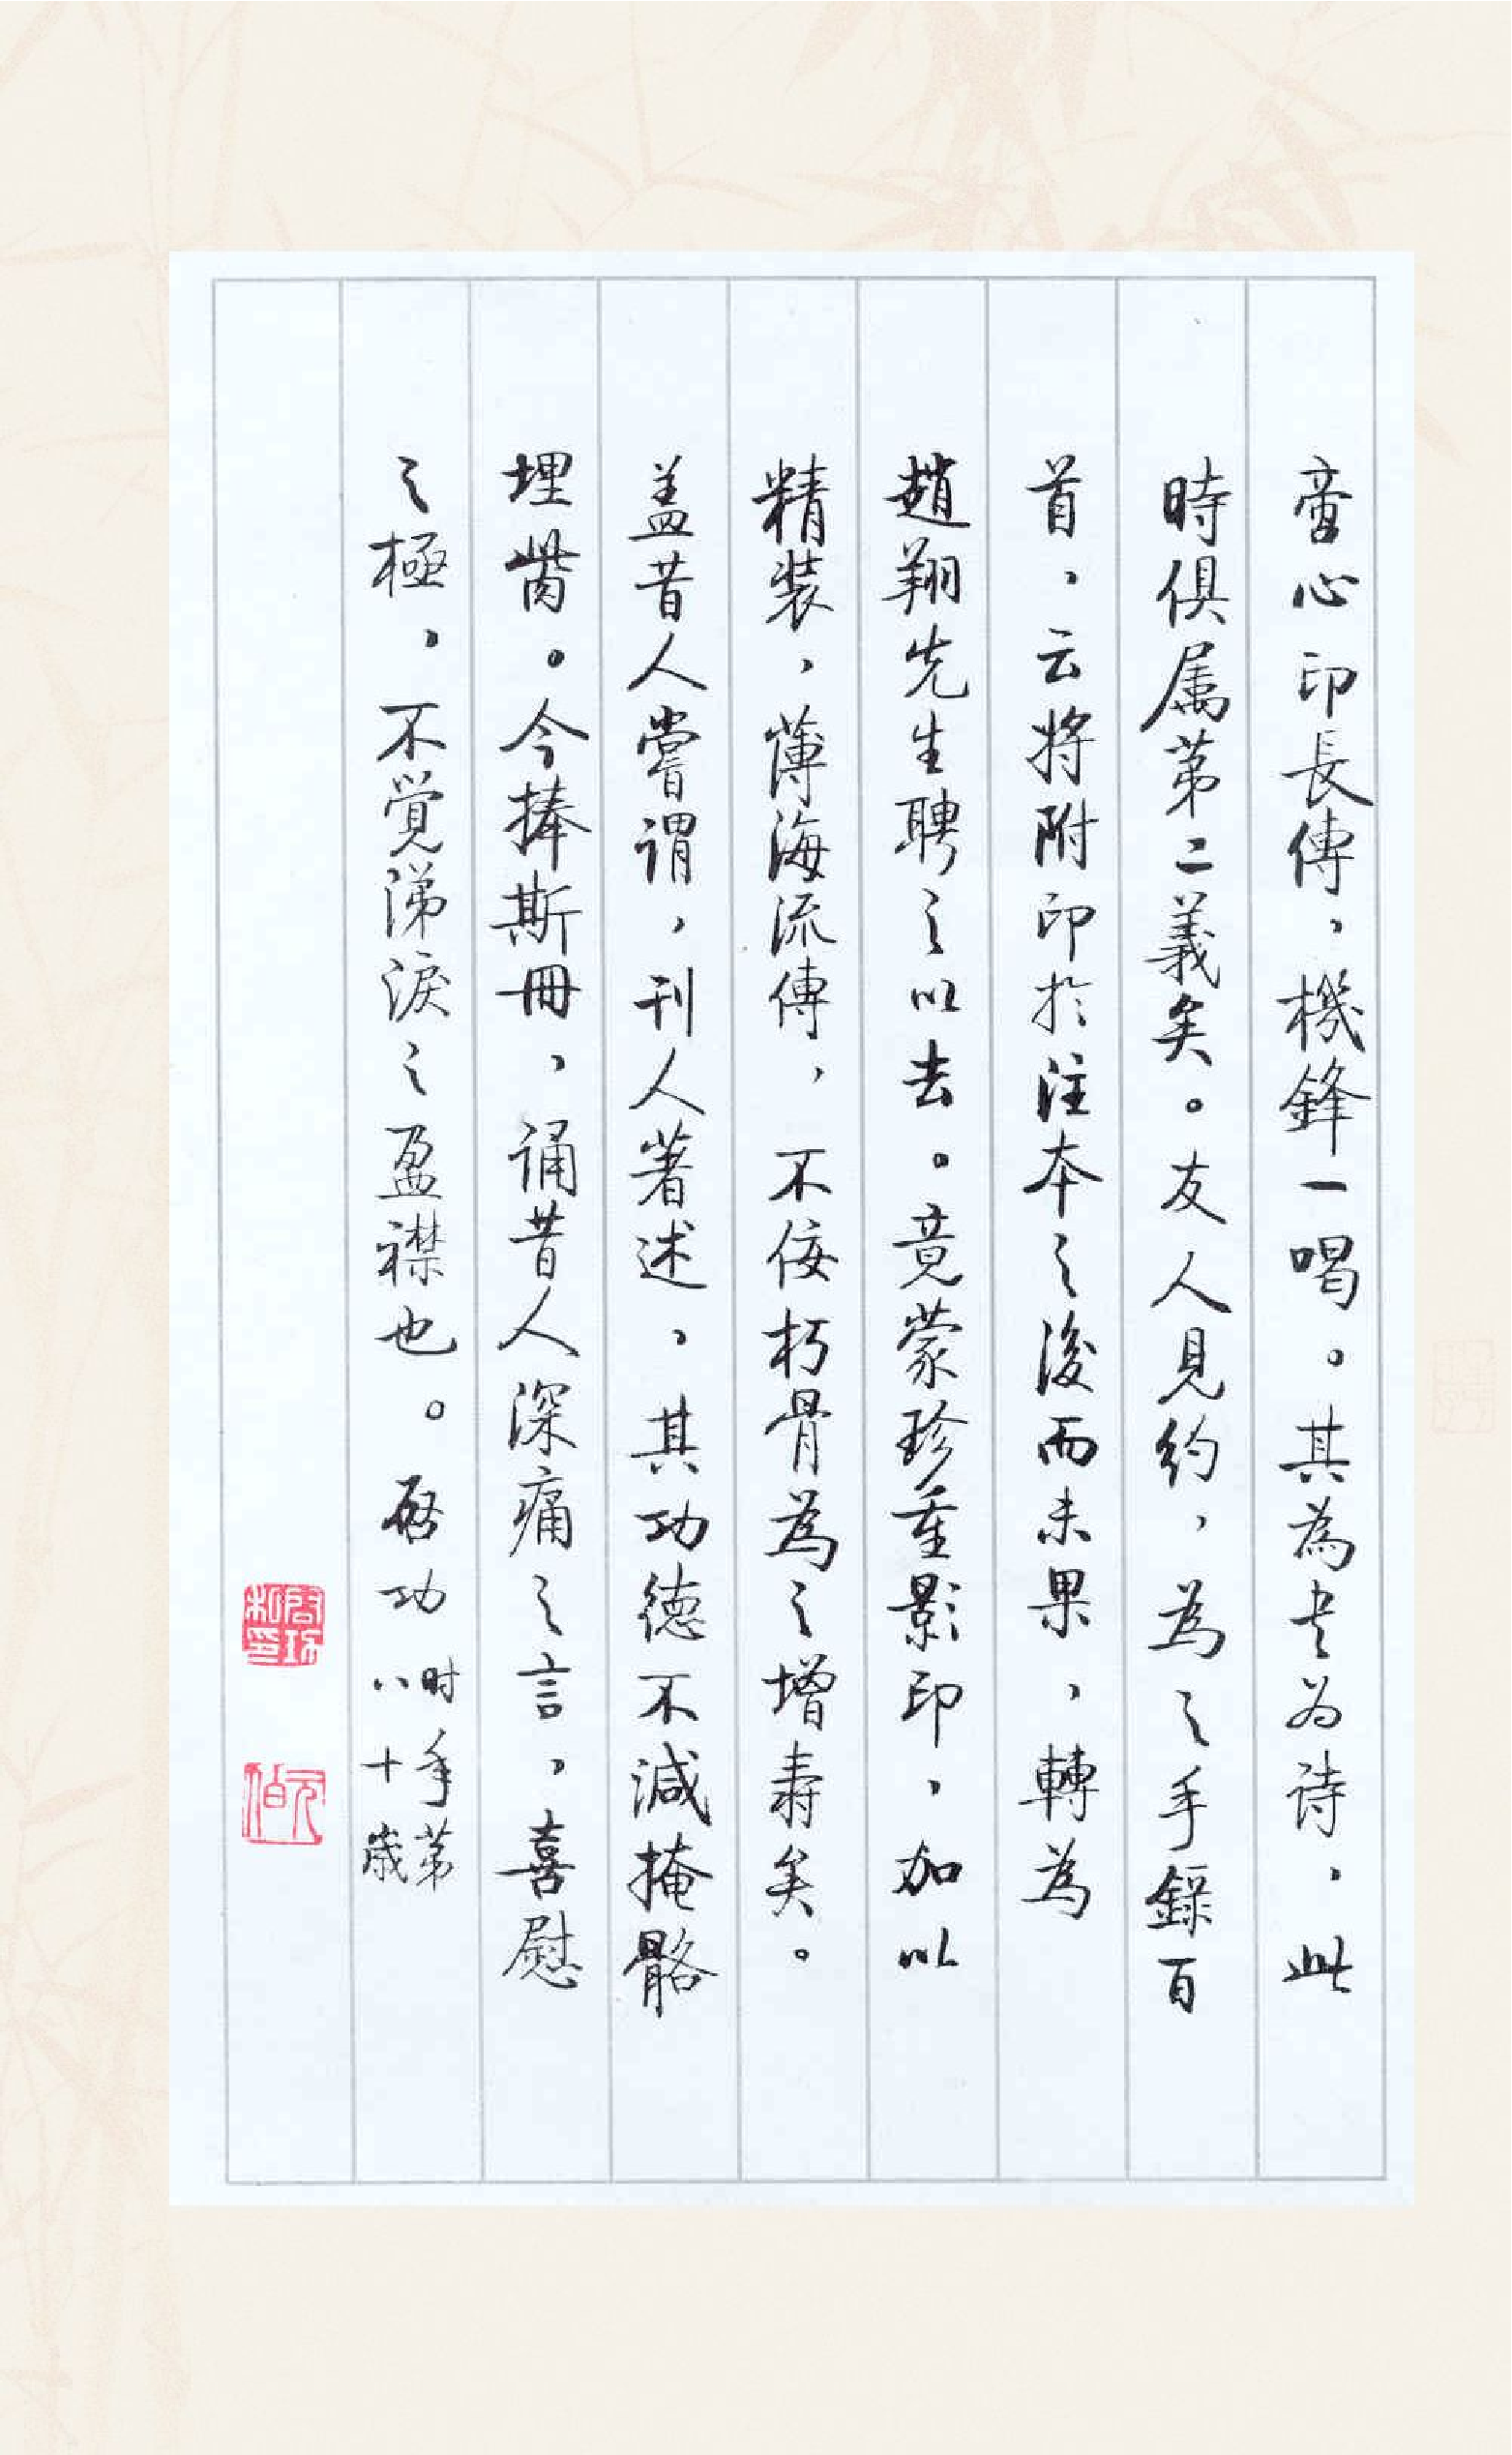 啻心印長傳，機鋒一喝。其為書为诗，此
時俱属第二義矣。友人見约，為之手錄百
首，云将附印於注本之後而未果，轉為
趙翔先生聘之以去。竟蒙珍重影印，加以
精装，薄海流傳，不佞朽骨為之增壽矣。
盖昔人嘗谓，刊人著述，其功德不減掩骼
埋胔。今捧斯冊，诵昔人深痛之言，喜慰
之極，不觉涕淚之盈襟也。啟功
时年第
八十歲
啟功
私印
元伯